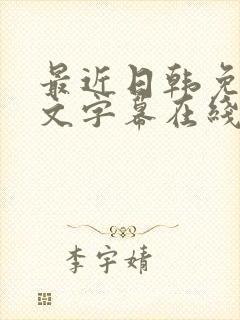 最近日韩免
文字幕在线
李宇婧